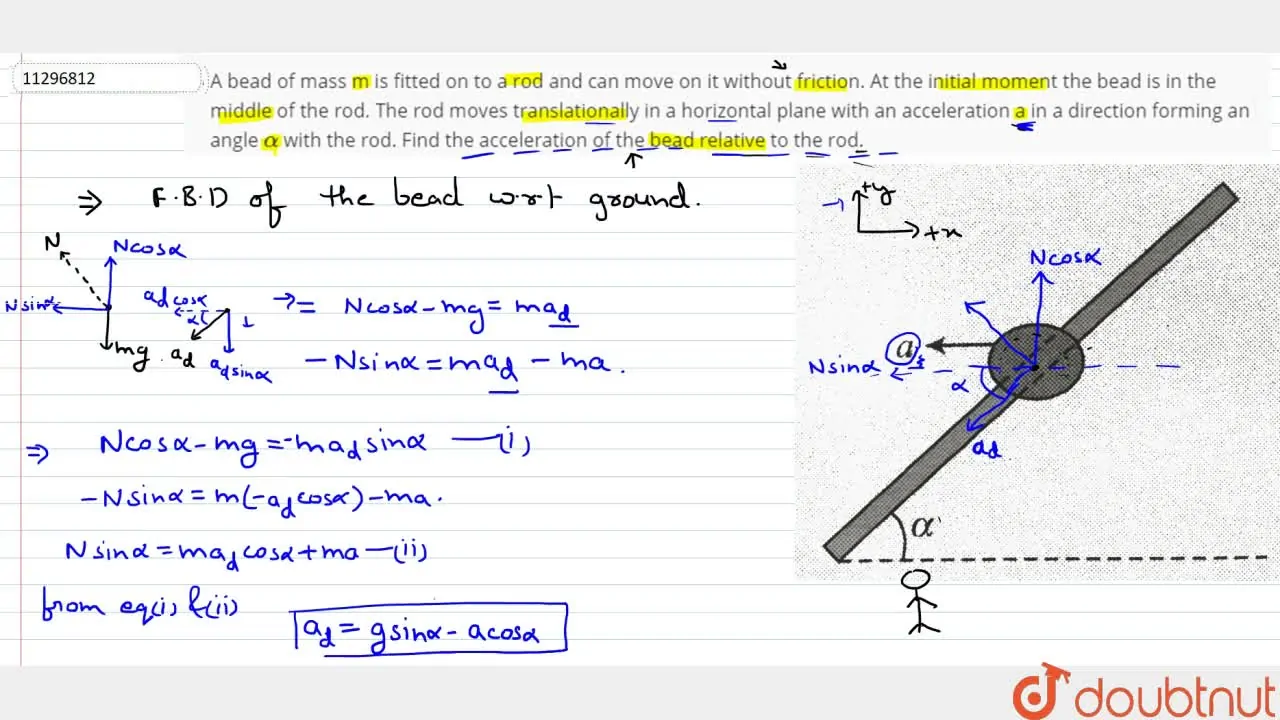 11296812
A bead of mass m is fitted on to a rod and can move on it without friction. At the initial moment the bead is in the
middle of the rod. The rod moves translationally in a horizontal plane with an acceleration a in a direction forming an
angle α with the rod. Find the acceleration of the bead relative to the rod.
⇒ F.B.D of the bead w.r.t ground.
N
Ncosα
Nsinα
mg
ad cosα
α
ad
ad sinα
→ = Ncosα - mg = mad
- Nsinα = mad - ma.
⇒ Ncosα - mg = -mad sinα —(i)
- Nsinα = m(-ad cosα) - ma.
Nsinα = mad cosα + ma —(ii)
from eq(i) &(ii)
ad = gsinα - acosα
+y
+x
Ncosα
a
Nsinα
α
ad
α
doubtnut